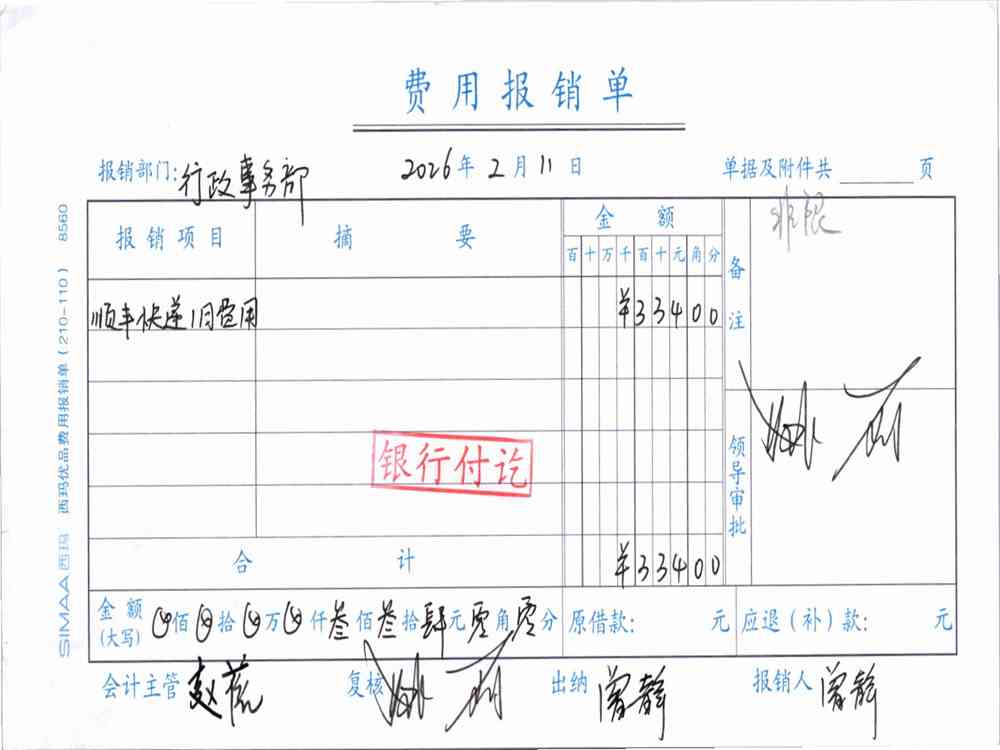 费用报销单
报销部门:行政事务部 2026年2月11日 单据及附件共 页
报销项目 摘要 金额 备注 非限
百十万千百十元角分
顺丰快递1月费用 ¥33400
银行付讫
领导审批
合计 ¥33400
金额(大写) 佰 拾 万 仟叁佰叁拾肆元零角零分 原借款: 元 应退(补)款: 元
会计主管 复核 出纳 曾静 报销人 曾静
SIMAA西玛 西玛优品费用报销单(210-110) 8560